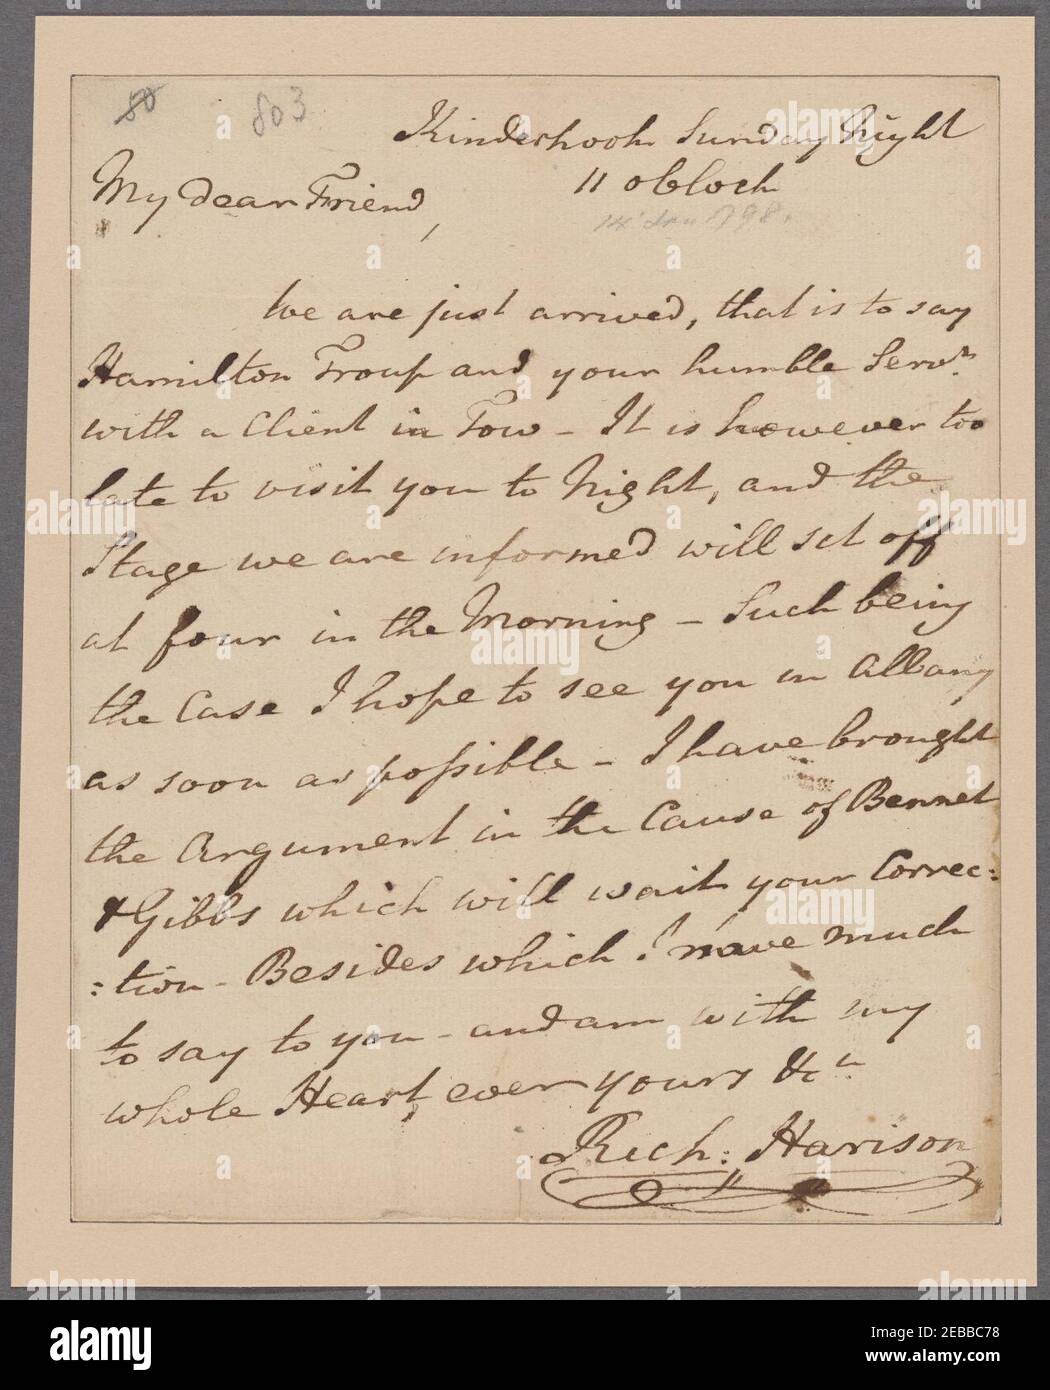 80 803
Kinderhook Sunday Night
11 oClock
My Dear Friend,
We are just arrived, that is to say
Hamilton Troup and your humble Servt.
with a Client in Tow – It is however too
late to visit you to Night, and the
Stage we are informed will set off
at four in the Morning – Such being
the Case I hope to see you in Albany
as soon as possible – I have brought
the Argument in the Cause of Bennet
& Gibbs which will wait your Correc:
:tion – Besides which I have much
to say to you – and am with my
whole Heart, ever yours &c
Rich: Harison
alamy
Image ID: 2EBBC78
www.alamy.com